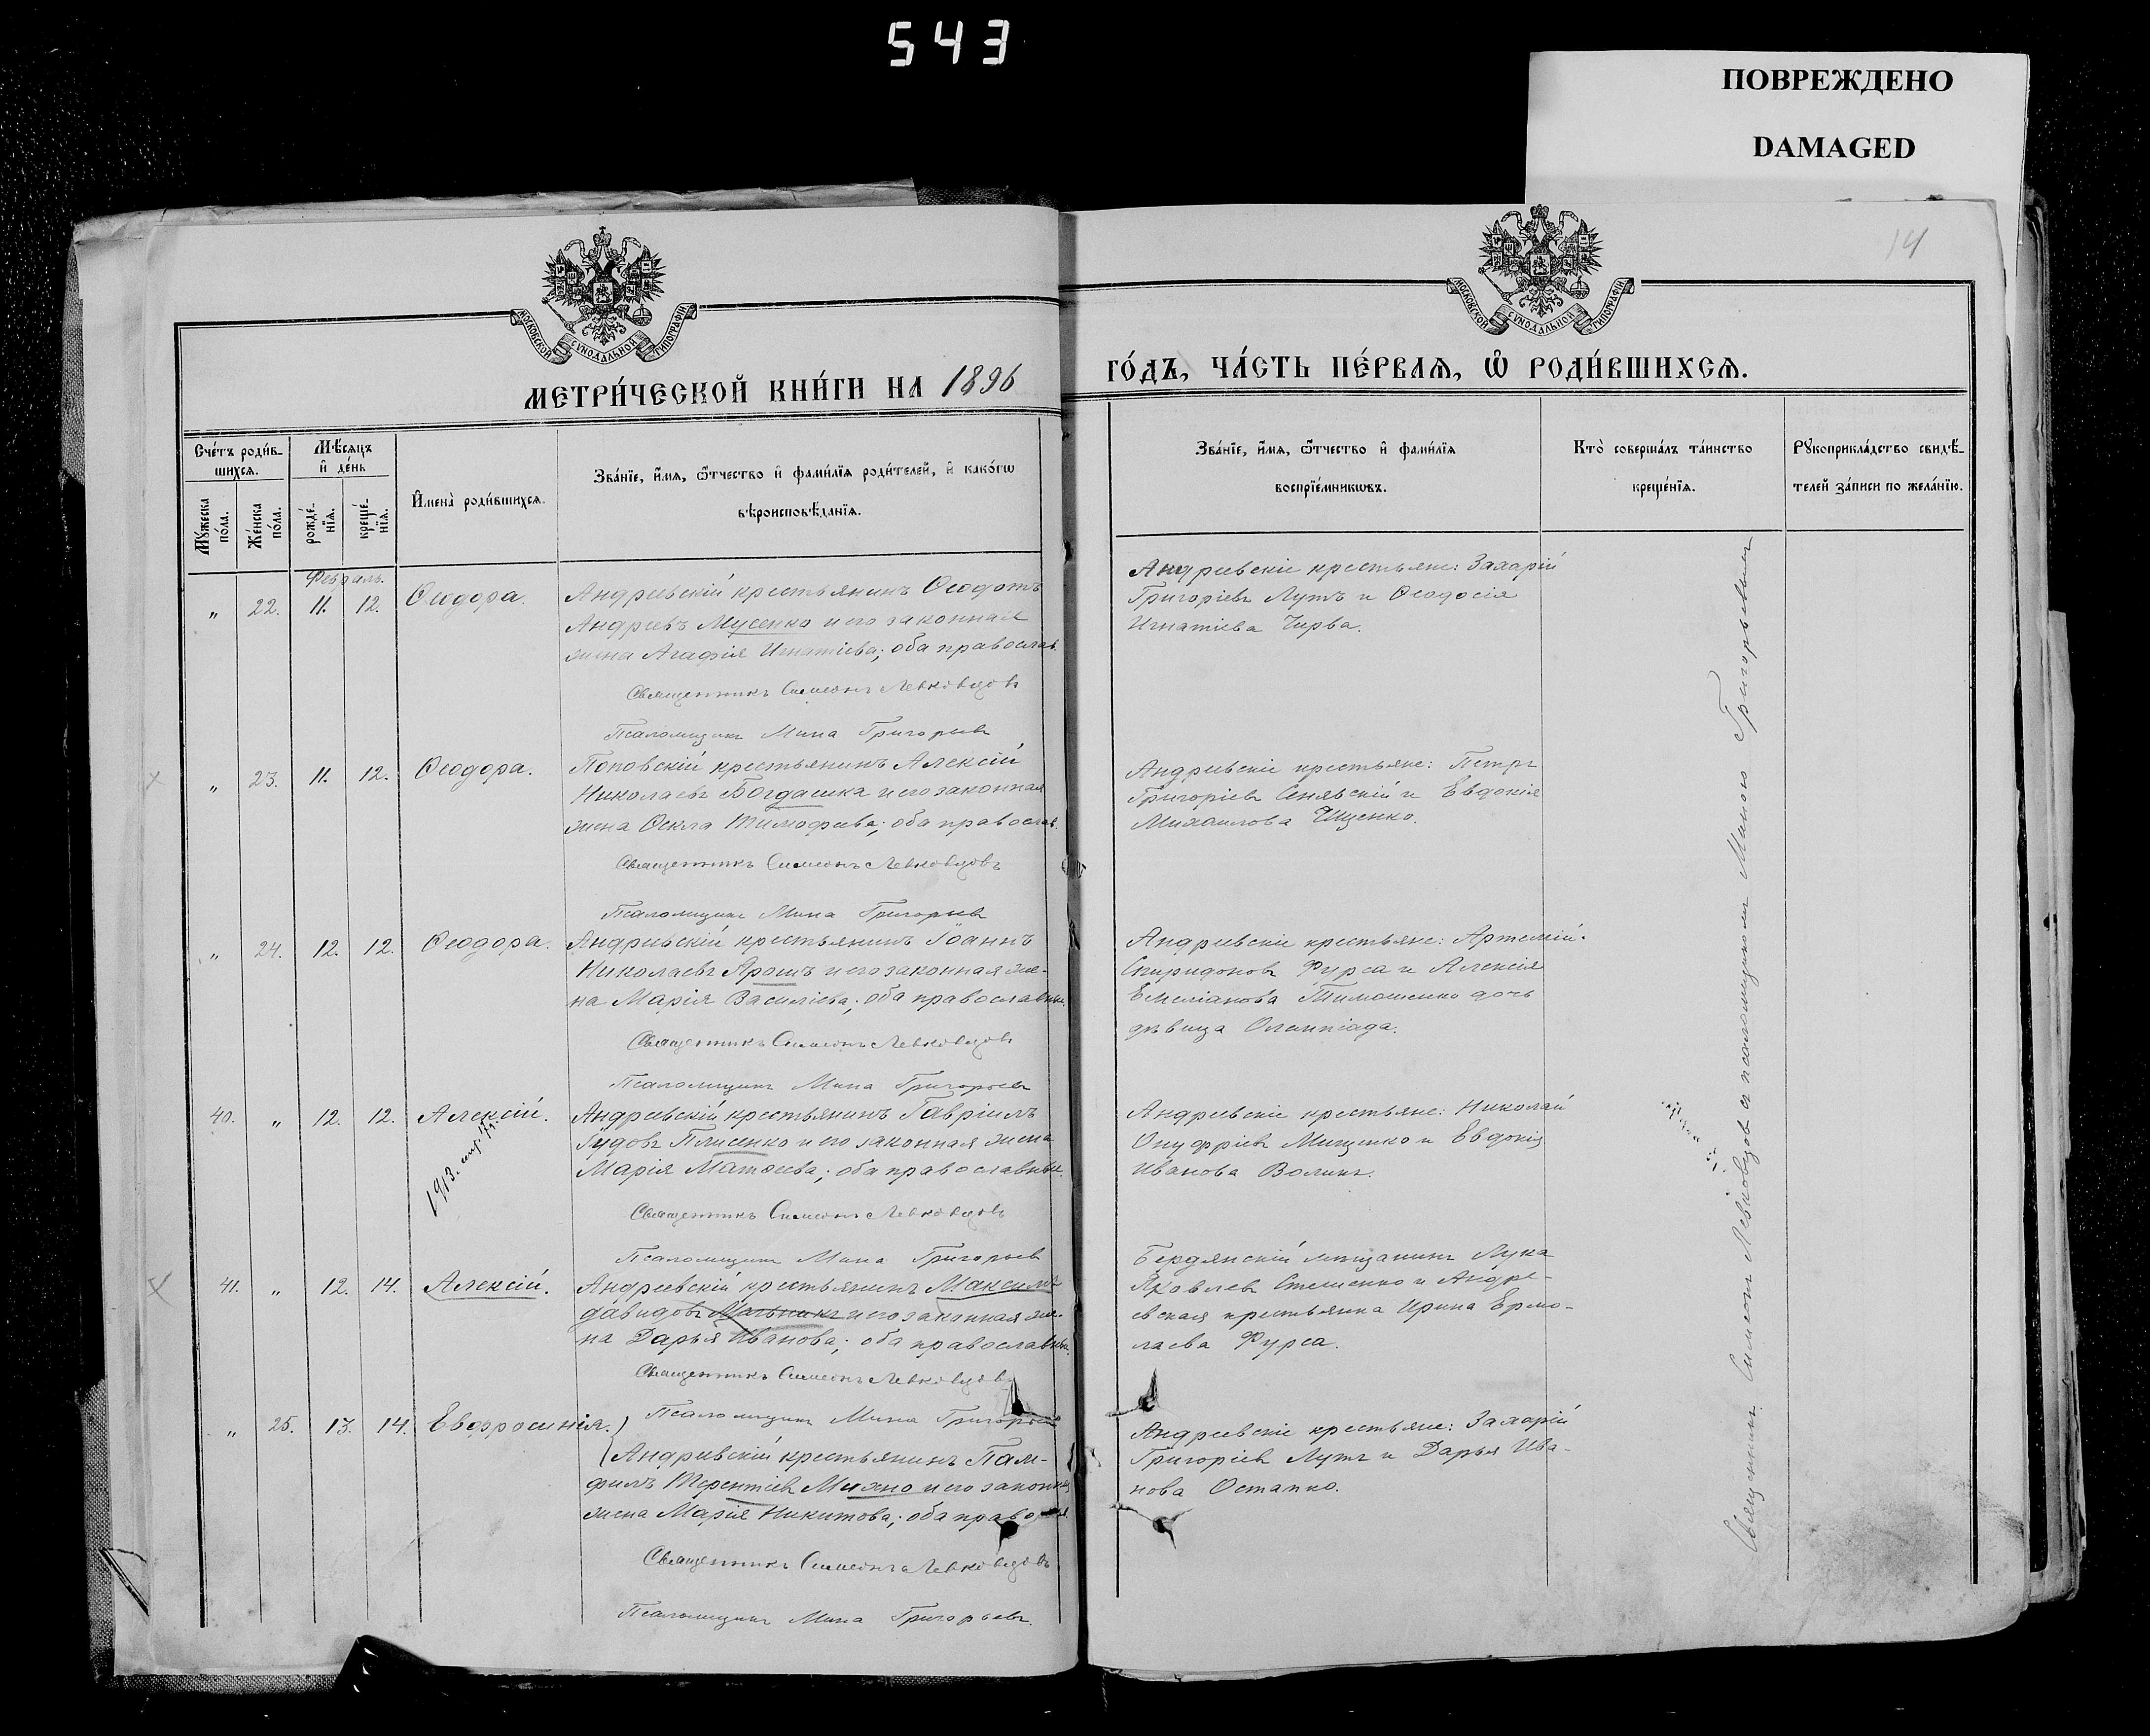 543
ПОВРЕЖДЕНО
DAMAGED
14
МОСКОВСКОЙ СѴНОДАЛЬНОЙ ТИПОГРАФІИ
МОСКОВСКОЙ СѴНОДАЛЬНОЙ ТИПОГРАФІИ
МЕТРИ́ЧЕСКОЙ КНИ́ГИ НА 1896
ГО́ДЪ, ЧА́СТЬ ПЕ́РВАѦ, Ѡ҆ РОДИ́ВШИХСѦ.
Сче́тъ роди́в-
шихсѧ.
Мѣ́сѧцъ
и҆ де́нь
Мꙋ́жеска
по́ла.
Же́нска
по́ла.
рожде́-
нїѧ.
креще́-
нїѧ.
И҆мена̀ роди́вшихсѧ.
Зва́нїе, и҆́мѧ, ѻ҆́тчество и҆ фами́лїѧ роди́телей, и҆ како́гѡ
вѣроисповѣ́данїѧ.
Зва́нїе, и҆́мѧ, ѻ҆́тчество и҆ фами́лїѧ
воспрїе́мникѡвъ.
Кто̀ соверша́лъ та́инство
креще́нїѧ.
Рꙋкоприкла́дство свидѣ́-
телей за́писи по жела́нїю.
Февраль
„ 22. 11. 12. Ѳеодора.
Андреевскій крестьянинъ Ѳеодотъ
Андреевъ Мусенко и его законная
жена Агафія Игнатіева; оба православ.
Священникъ Симеонъ Левковцовъ
Псаломщикъ Мина Григорьев
Андреевскіе крестьяне: Захарій
Григоріевъ Лутъ и Ѳеодосія
Игнатіева Чирва.
„ 23. 11. 12. Ѳеодора.
Поповскій крестьянинъ Алексій
Николаевъ Богдашка и его законная
жена Ѳекла Тимофеева; оба православ.
Священникъ Симеонъ Левковцовъ
Псаломщикъ Мина Григорьев
Андреевскіе крестьяне: Петръ
Григоріевъ Синявскій и Евдокія
Михаилова Ищенко.
„ 24. 12. 12. Ѳеодора.
Андреевскій крестьянинъ Іоаннъ
Николаевъ Ярошъ и его законная же-
на Марія Василіева; оба православные.
Священникъ Симеонъ Левковцовъ
Псаломщикъ Мина Григорьев
Андреевскіе крестьяне: Артемій
Спиридоновъ Фурса и Алексія
Емеліанова Тимошенко дочь
дѣвица Олимпіада.
40. „ 12. 12. Алексій.
1913.
Андреевскій крестьянинъ Гавріилъ
Іудовъ Плисенко и его законная жена
Марія Матѳеева; оба православные.
Священникъ Симеонъ Левковцовъ
Псаломщикъ Мина Григорьев
Андреевскіе крестьяне: Николай
Онуфріевъ Мищенко и Евдокія
Иванова Воликъ.
41. „ 12. 14. Алексій.
Андреевскій крестьянинъ Максимъ
Давидовъ Мельникъ и его законная же-
на Дарья Иванова; оба православные.
Священникъ Симеонъ Левковцовъ
Псаломщикъ Мина Григорьев
Бердянскій мѣщанинъ Лука
Яковлевъ Стешенко и Андре-
евская крестьянка Ирина Ермо-
лаева Фурса.
„ 25. 13. 14. Евфросинія.
Андреевскій крестьянинъ Пам-
филъ Терентіевъ Михно и его законная
жена Марія Никитова; оба правосл
Священникъ Симеонъ Левковцовъ
Псаломщикъ Мина Григорьевъ.
Андреевскіе крестьяне: Захарій
Григоріевъ Лутъ и Дарья Ива-
нова Остапко.
Священникъ Симеонъ Левковцовъ съ псаломщикомъ Миною Григорьевымъ